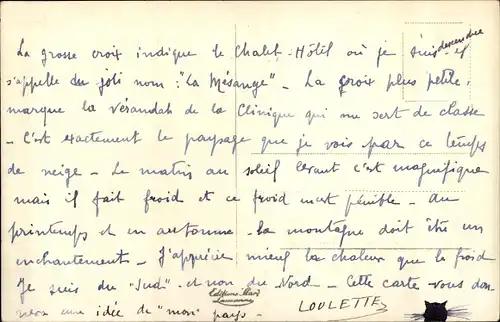 La grosse croix indique le Chalet-Hôtel où je suis descendue et
s'appelle du joli nom : "La Mésange" - La croix plus petite
marque la Vérandah de la Clinique qui me sert de classe
- C'est exactement le paysage que je vois par ce temps
de neige - Le matin au soleil levant c'est magnifique
mais il fait froid et ce froid m'est pénible - Au
printemps et en automne la montagne doit être un
enchantement - J'apprécie mieux la chaleur que le froid
Je suis du "Sud" - et non du Nord - Cette carte vous don-
nera une idée de "mon" pays -
LOULETTE